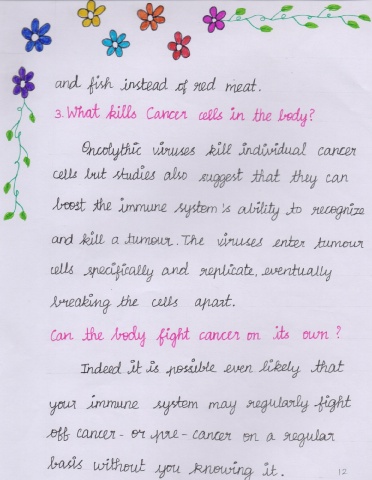 and fish instead of red meat.
3. What kills Cancer cells in the body?
Oncolythic viruses kill individual cancer
cells but studies also suggest that they can
boost the immune system's ability to recognize
and kill a tumour. The viruses enter tumour
cells specifically and replicate, eventually
breaking the cells apart.
Can the body fight cancer on its own?
Indeed it is possible even likely that
your immune system may regularly fight
off cancer - or pre - cancer on a regular
basis without you knowing it.
12